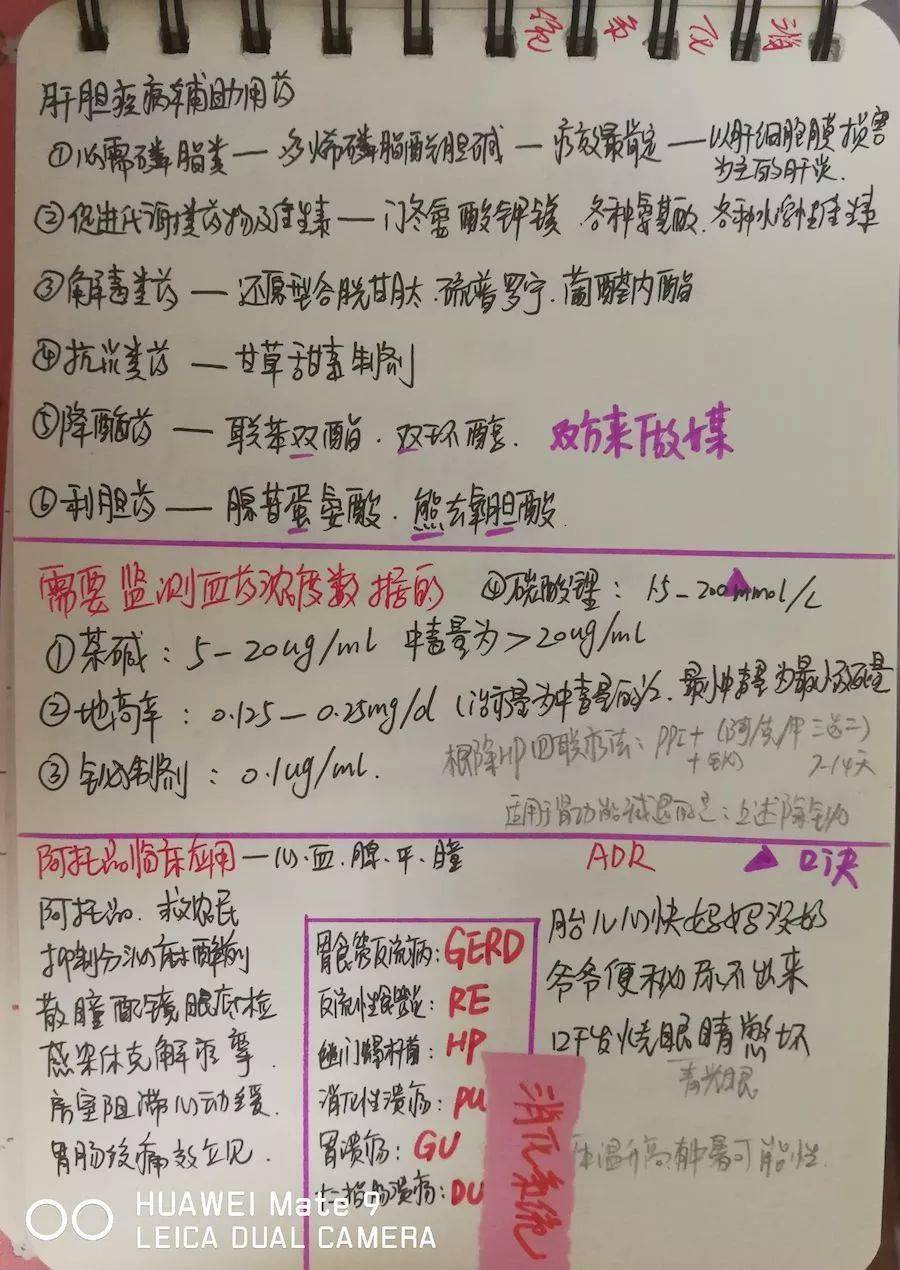 消化系统
肝胆疾病辅助用药
①必需磷脂类—多烯磷脂酰胆碱—疗效最肯定—以肝细胞膜损害
为主的肝炎.
②促进代谢类药物及维生素—门冬氨酸钾镁 各种氨基酸.各种水溶性维生素
③解毒类药—还原型谷胱甘肽.硫普罗宁.葡醛内酯
④抗炎类药—甘草甜素制剂
⑤降酶药—联苯双酯.双环醇. 双方来下做媒
⑥利胆药—腺苷蛋氨酸.熊去氧胆酸.
需要监测血药浓度数据的 ④碳酸锂:15-200mmol/L
①茶碱:5-20ug/ml 中毒量为>20ug/ml
②地高辛:0.125-0.25mg/d(治疗量为中毒量的1/2.最小中毒量为最小致死量
③铋制剂:0.1ug/ml.
根除HP四联疗法:PPI+(阿/克/甲三选二)
+铋 7-14天
适用于肾功能减退的是:上述除铋
阿托品临床应用—心.血.腺.平.瞳 ADR ▲口诀
阿托品.救农民
抑制分泌麻醉剂
散瞳配镜眼底检
感染休克解痉挛
房室阻滞心动缓.
胃肠绞痛效立见.
胃食管反流病:GERD
反流性食管炎:RE
幽门螺杆菌:HP
消化性溃疡:PU
胃溃疡:GU
十二指肠溃疡:DU
消化系统
胎儿心快妈妈没奶
爷爷便秘尿不出来
口干发烧眼睛憋坏
青光眼
体温升高有中暑可能性.
HUAWEI Mate 9
LEICA DUAL CAMERA